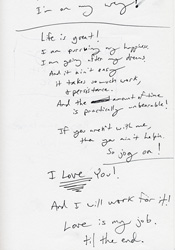 I'm on my way!
Life is great!
I am pursuing my happiness.
I am going after my dreams.
And it ain't easy
it takes so much work,
& persistance.
And the amount of time
is practically unbearable!
If you aren't with me,
then you ain't helpin.
So jog on!
I Love You!
And I will work for it!
Love is my job.
til the end.